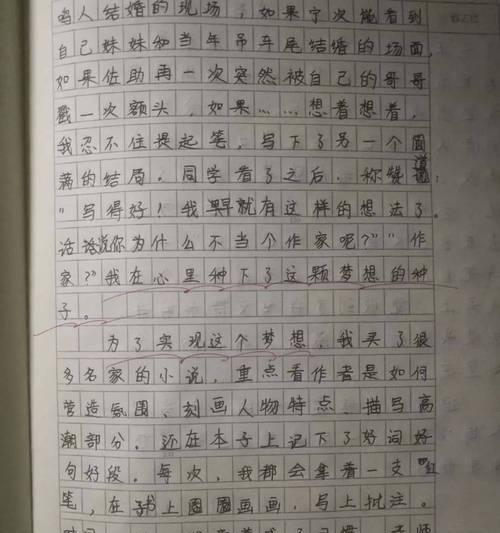 鸣人结婚的现场，如果宁次能看到
自己妹妹和当年吊车尾结婚的场面，
如果佐助再一次突然被自己的哥哥
戳一次额头，如果……想着想着，
我忍不住提起笔，写下了另一个圆
满的结局。同学看了之后，称赞道：
"写得好！我早就有这样的想法了。
话说你为什么不当个作家呢？""作
家？"我在心里种下了这颗梦想的种
子。
为了实现这个梦想，我买了很
多名家的小说，重点看作者是如何
营造氛围、刻画人物特点、描写高
潮部分，还在本子上记下了好词好
句好段。每次，我都会拿着一支红
笔，在书上圈圈画画，写上批注。